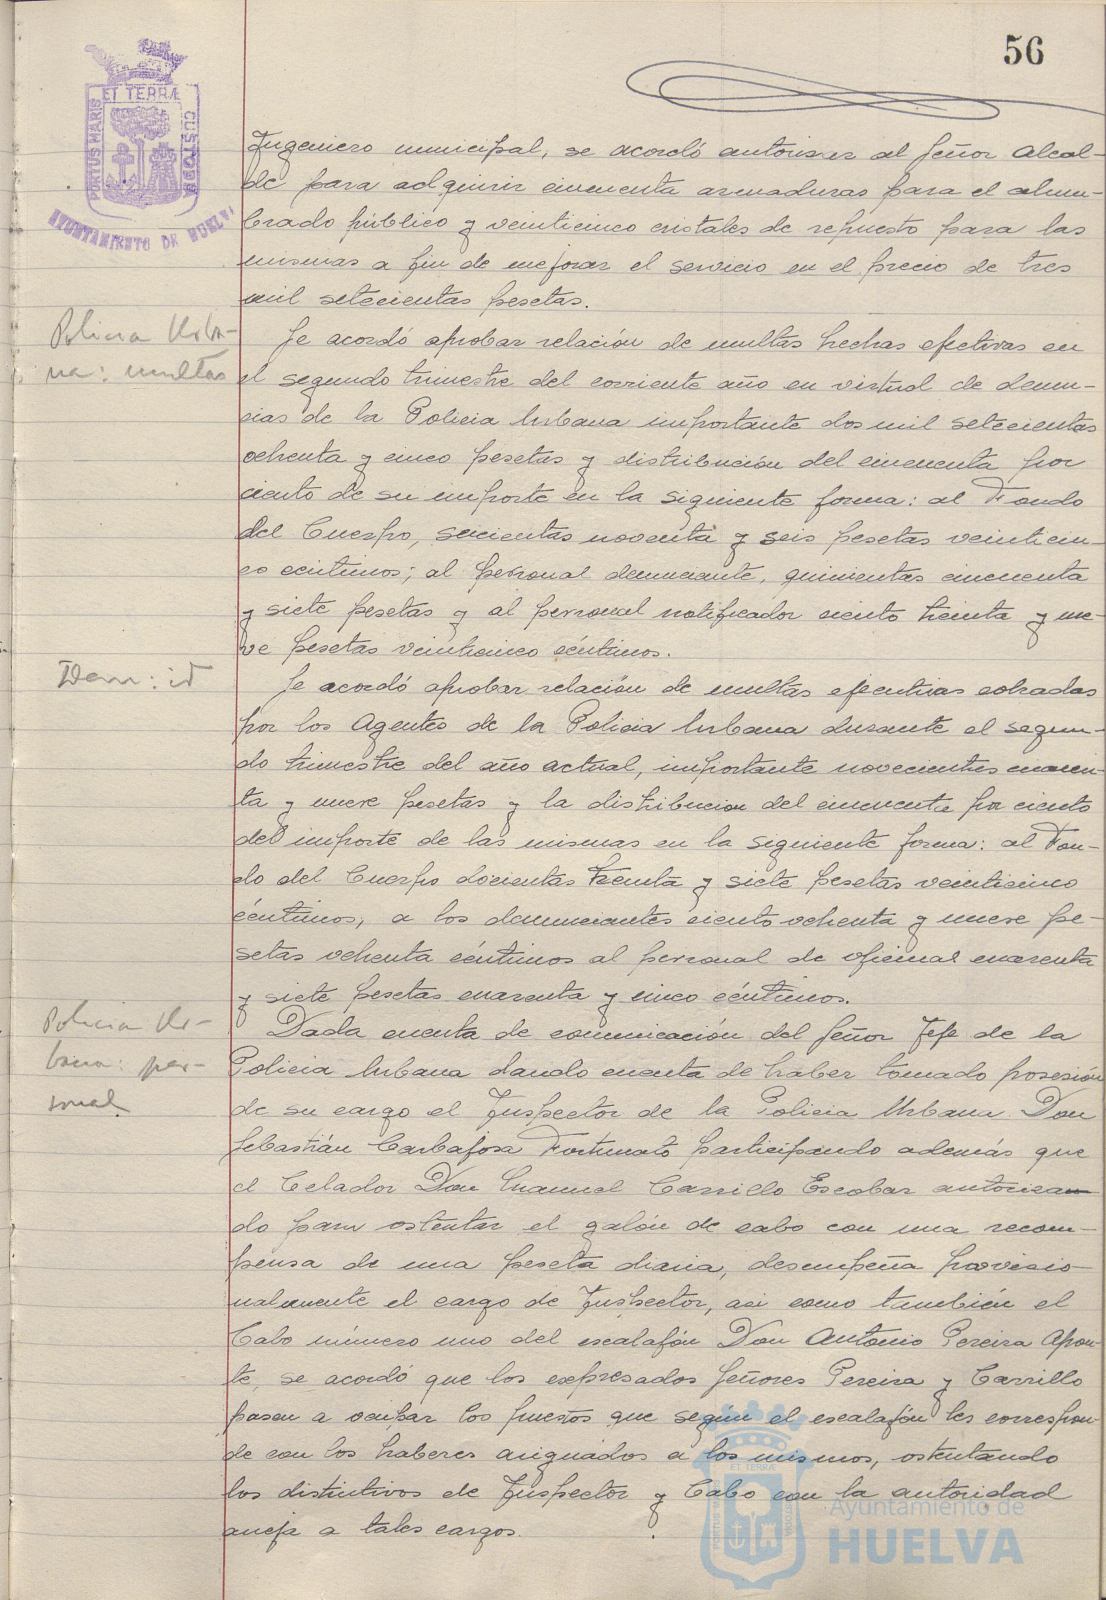 56
PORTUS MARIS ET TERRÆ CUSTODIA
AYUNTAMIENTO DE HUELVA
Ingeniero municipal, se acordó autorizar al Señor Alcal-
de para adquirir cincuenta armaduras para el alum-
brado público y veinticinco cristales de repuesto para las
mismas a fin de mejorar el servicio en el precio de tres
mil setecientas pesetas.
Policia Urba-
na: multas
Se acordó aprobar relación de multas hechas efectivas en
el segundo trimestre del corriente año en virtud de denun-
cias de la Policia Urbana importante dos mil setecientas
ochenta y cinco pesetas y distribución del cincuenta por
ciento de su importe en la siguiente forma: al Fondo
del Cuerpo, seicientas noventa y seis pesetas veinticin-
co centimos; al personal denunciante, quinientas cincuenta
y siete pesetas y al personal notificador ciento treinta y nue-
ve pesetas veinticinco céntimos.
Idem: id
Se acordó aprobar relación de multas ejecutivas cobradas
por los Agentes de la Policia Urbana durante el segun-
do trimestre del año actual, importante novecientas cuaren-
ta y nueve pesetas y la distribucion del cincuenta por ciento
del importe de las mismas en la siguiente forma: al Fon-
do del Cuerpo docientas treinta y siete pesetas veinticinco
céntimos, a los denunciantes ciento ochenta y nueve pe-
setas ochenta céntimos al personal de oficinas cuarenta
y siete pesetas cuarenta y cinco céntimos.
Policia Ur-
bana: per-
sonal
Dada cuenta de comunicación del Señor Jefe de la
Policia Urbana dando cuenta de haber tomado posesión
de su cargo el Inspector de la Policia Urbana Don
Sebastián Carbajosa Fortunato participando además que
el Celador Don Manuel Carrillo Escobar autoriza-
do para ostentar el galón de cabo con una recom-
pensa de una peseta diaria, desempeña provisio-
nalmente el cargo de Inspector, asi como tambien el
Cabo número uno del escalafón Don Antonio Pereira Apon-
te, se acordó que los expresados Señores Pereira y Carrillo
pasen a ocupar los puestos que según el escalafón les correspon-
de con los haberes asignados a los mismos, ostentando
los distintivos de Inspector y Cabo con la autoridad
aneja a tales cargos.
Ayuntamiento de
HUELVA